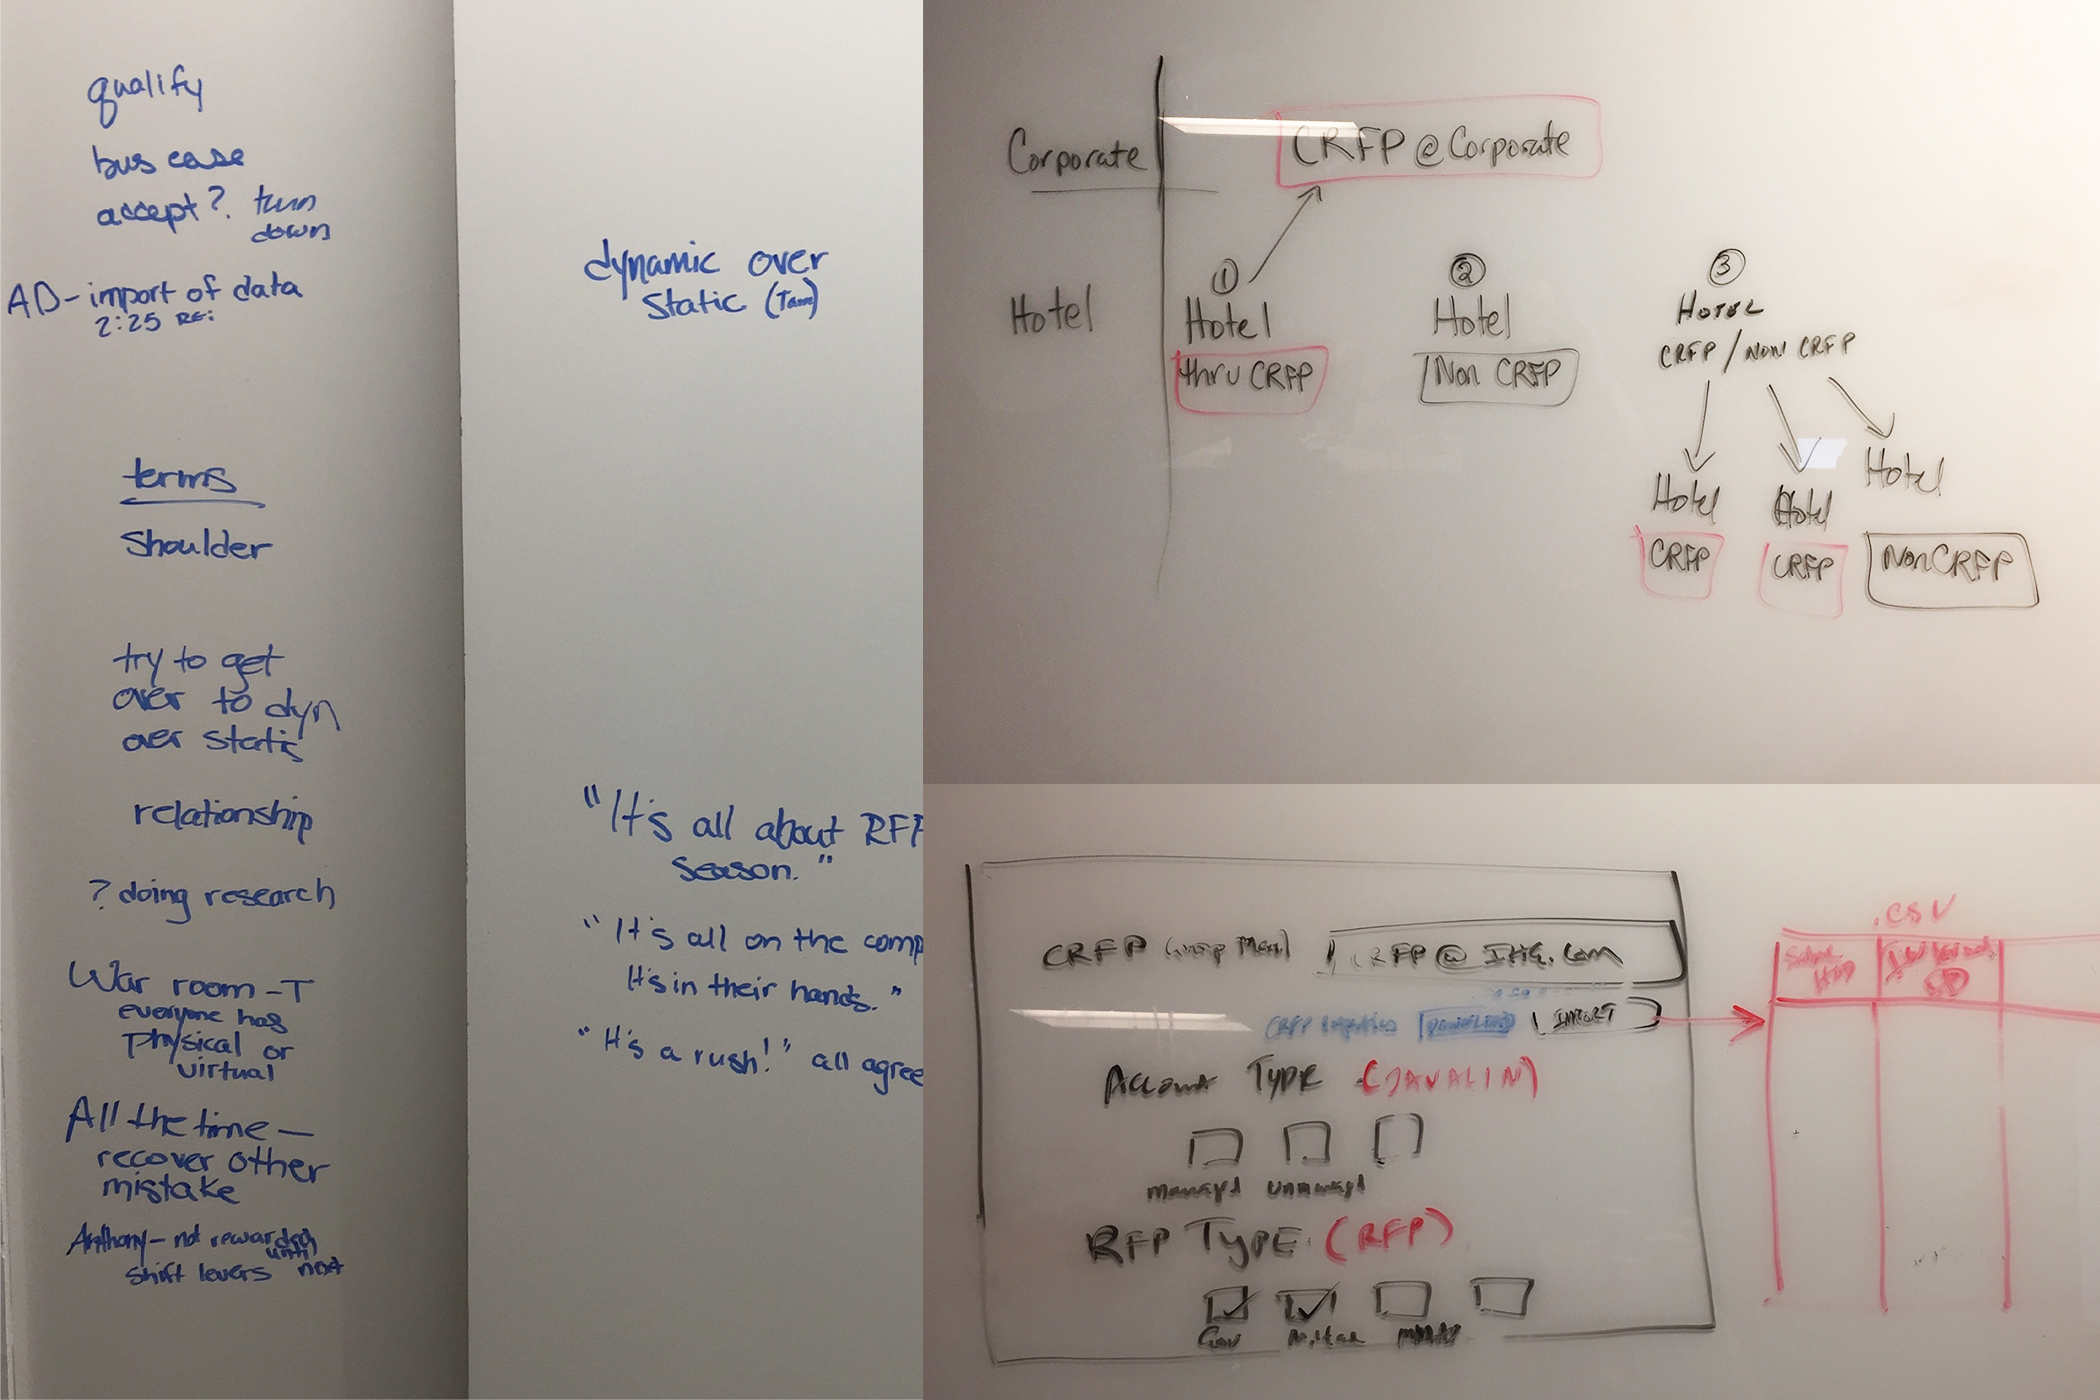 qualify
bus case
accept? turn
down
AD-import of data
2:25 RE:
terms
Shoulder
try to get
over to dyn
over static
relationship
? doing research
War room - T
everyone has
Physical or
virtual
All the time —
recover other
mistake
Anthony - not rewarded
until
shift levers next
dynamic over
static (Tam)
"It's all about RFP
season."
"It's all on the comp
It's in their hands."
"It's a rush!" all agree
Corporate
CRFP @ Corporate
Hotel
① ② ③
Hotel
thru CRFP
Hotel
Non CRFP
HOTEL
CRFP / NON CRFP
Hotel
CRFP
Hotel
CRFP
Hotel
Non CRFP
CRFP
CRFP @ IHG.com
CRFP
DOWNLOAD
IMPORT
ACCOUNT TYPE (JAVALIN)
managed unmanaged
RFP TYPE (RFP)
Gov
.CSV